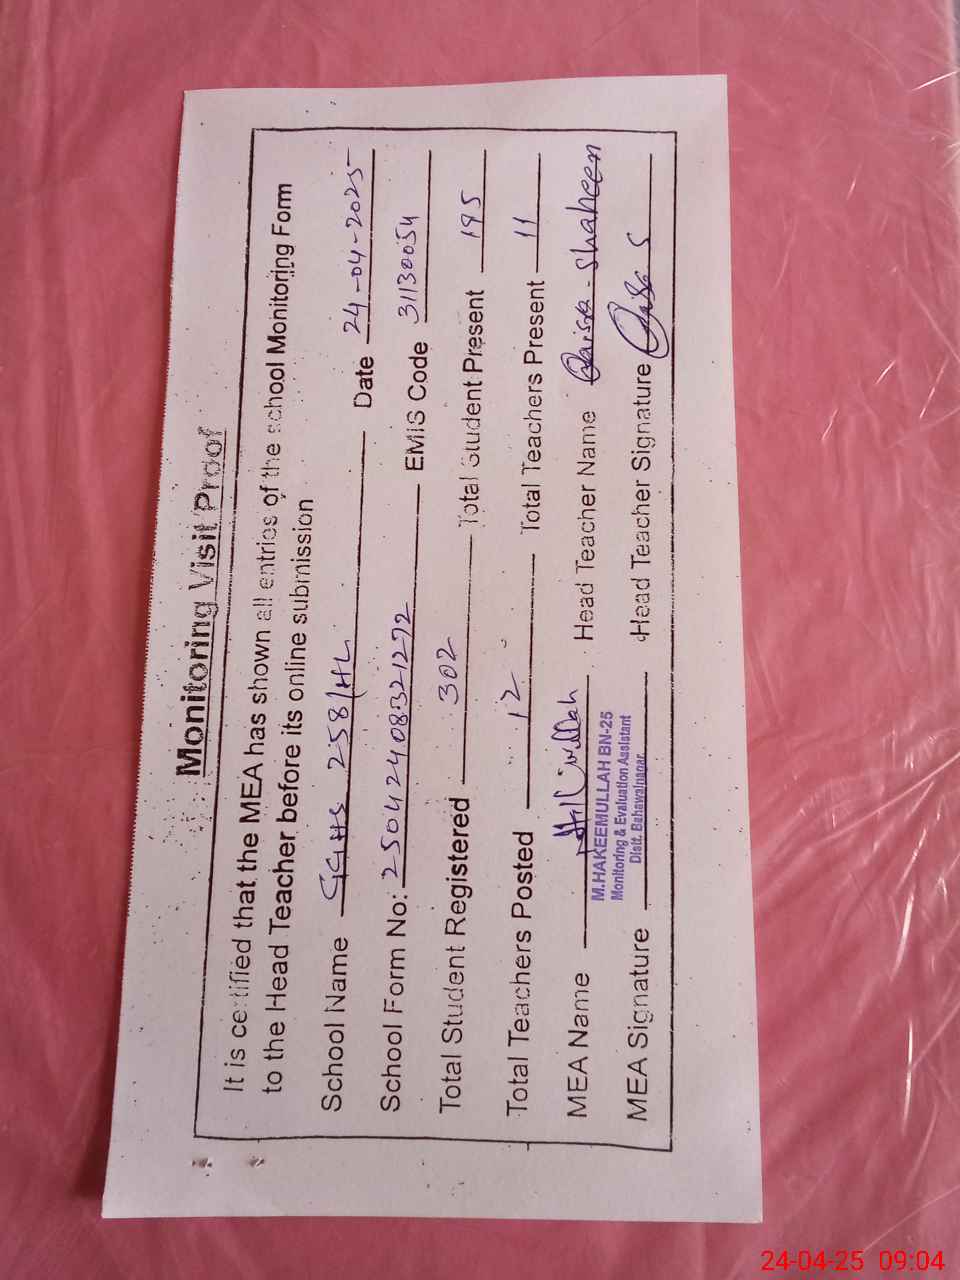 Monitoring Visit Proof
It is certified that the MEA has shown all entries of the school Monitoring Form
to the Head Teacher before its online submission
School Name GGHS 258/HL Date 24-04-2025
School Form No: 25042408321272 EMIS Code 31130054
Total Student Registered 302 Total Student Present 195
Total Teachers Posted 12 Total Teachers Present 11
MEA Name Head Teacher Name Qaisra Shaheen
M.HAKEEMULLAH BN-25
Monitoring & Evaluation Assistant
Distt. Bahawalnagar.
MEA Signature Head Teacher Signature
24-04-25 09:04